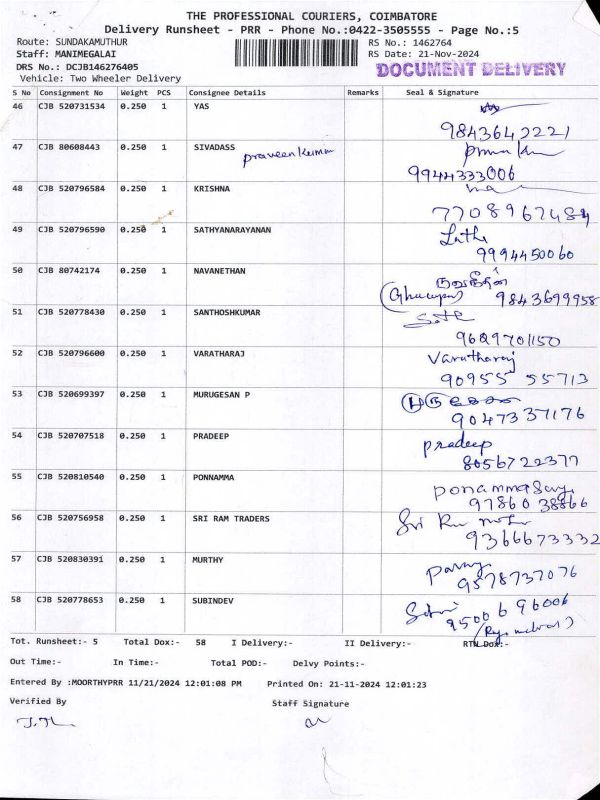 THE PROFESSIONAL COURIERS, COIMBATORE
Delivery Runsheet - PRR - Phone No.:0422-3505555 - Page No.:5
Route: SUNDAKAMUTHUR RS No.: 1462764
Staff: MANIMEGALAI RS Date: 21-Nov-2024
DRS No.: DCJB146276405 DOCUMENT DELIVERY
Vehicle: Two Wheeler Delivery
S No Consignment No Weight PCS Consignee Details Remarks Seal & Signature
46 CJB 520731534 0.250 1 YAS
9843642221
47 CJB 80608443 0.250 1 SIVADASS
praveen kumar
9944333006
48 CJB 520796584 0.250 1 KRISHNA
7708967484
49 CJB 520796590 0.250 1 SATHYANARAYANAN
9994450060
50 CJB 80742174 0.250 1 NAVANETHAN
9843699958
51 CJB 520778430 0.250 1 SANTHOSHKUMAR
9629701150
52 CJB 520796600 0.250 1 VARATHARAJ Varatharaj
90955 55713
53 CJB 520699397 0.250 1 MURUGESAN P
9047337176
54 CJB 520707518 0.250 1 PRADEEP pradeep
8056722377
55 CJB 520810540 0.250 1 PONNAMMA
97860 38866
56 CJB 520756958 0.250 1 SRI RAM TRADERS Sri
9366673332
57 CJB 520830391 0.250 1 MURTHY
9578737076
58 CJB 520778653 0.250 1 SUBINDEV
9500696006
Tot. Runsheet:- 5 Total Dox:- 58 I Delivery:- II Delivery:- RTN Dox:-
Out Time:- In Time:- Total POD:- Delvy Points:-
Entered By :MOORTHYPRR 11/21/2024 12:01:08 PM Printed On: 21-11-2024 12:01:23
Verified By Staff Signature